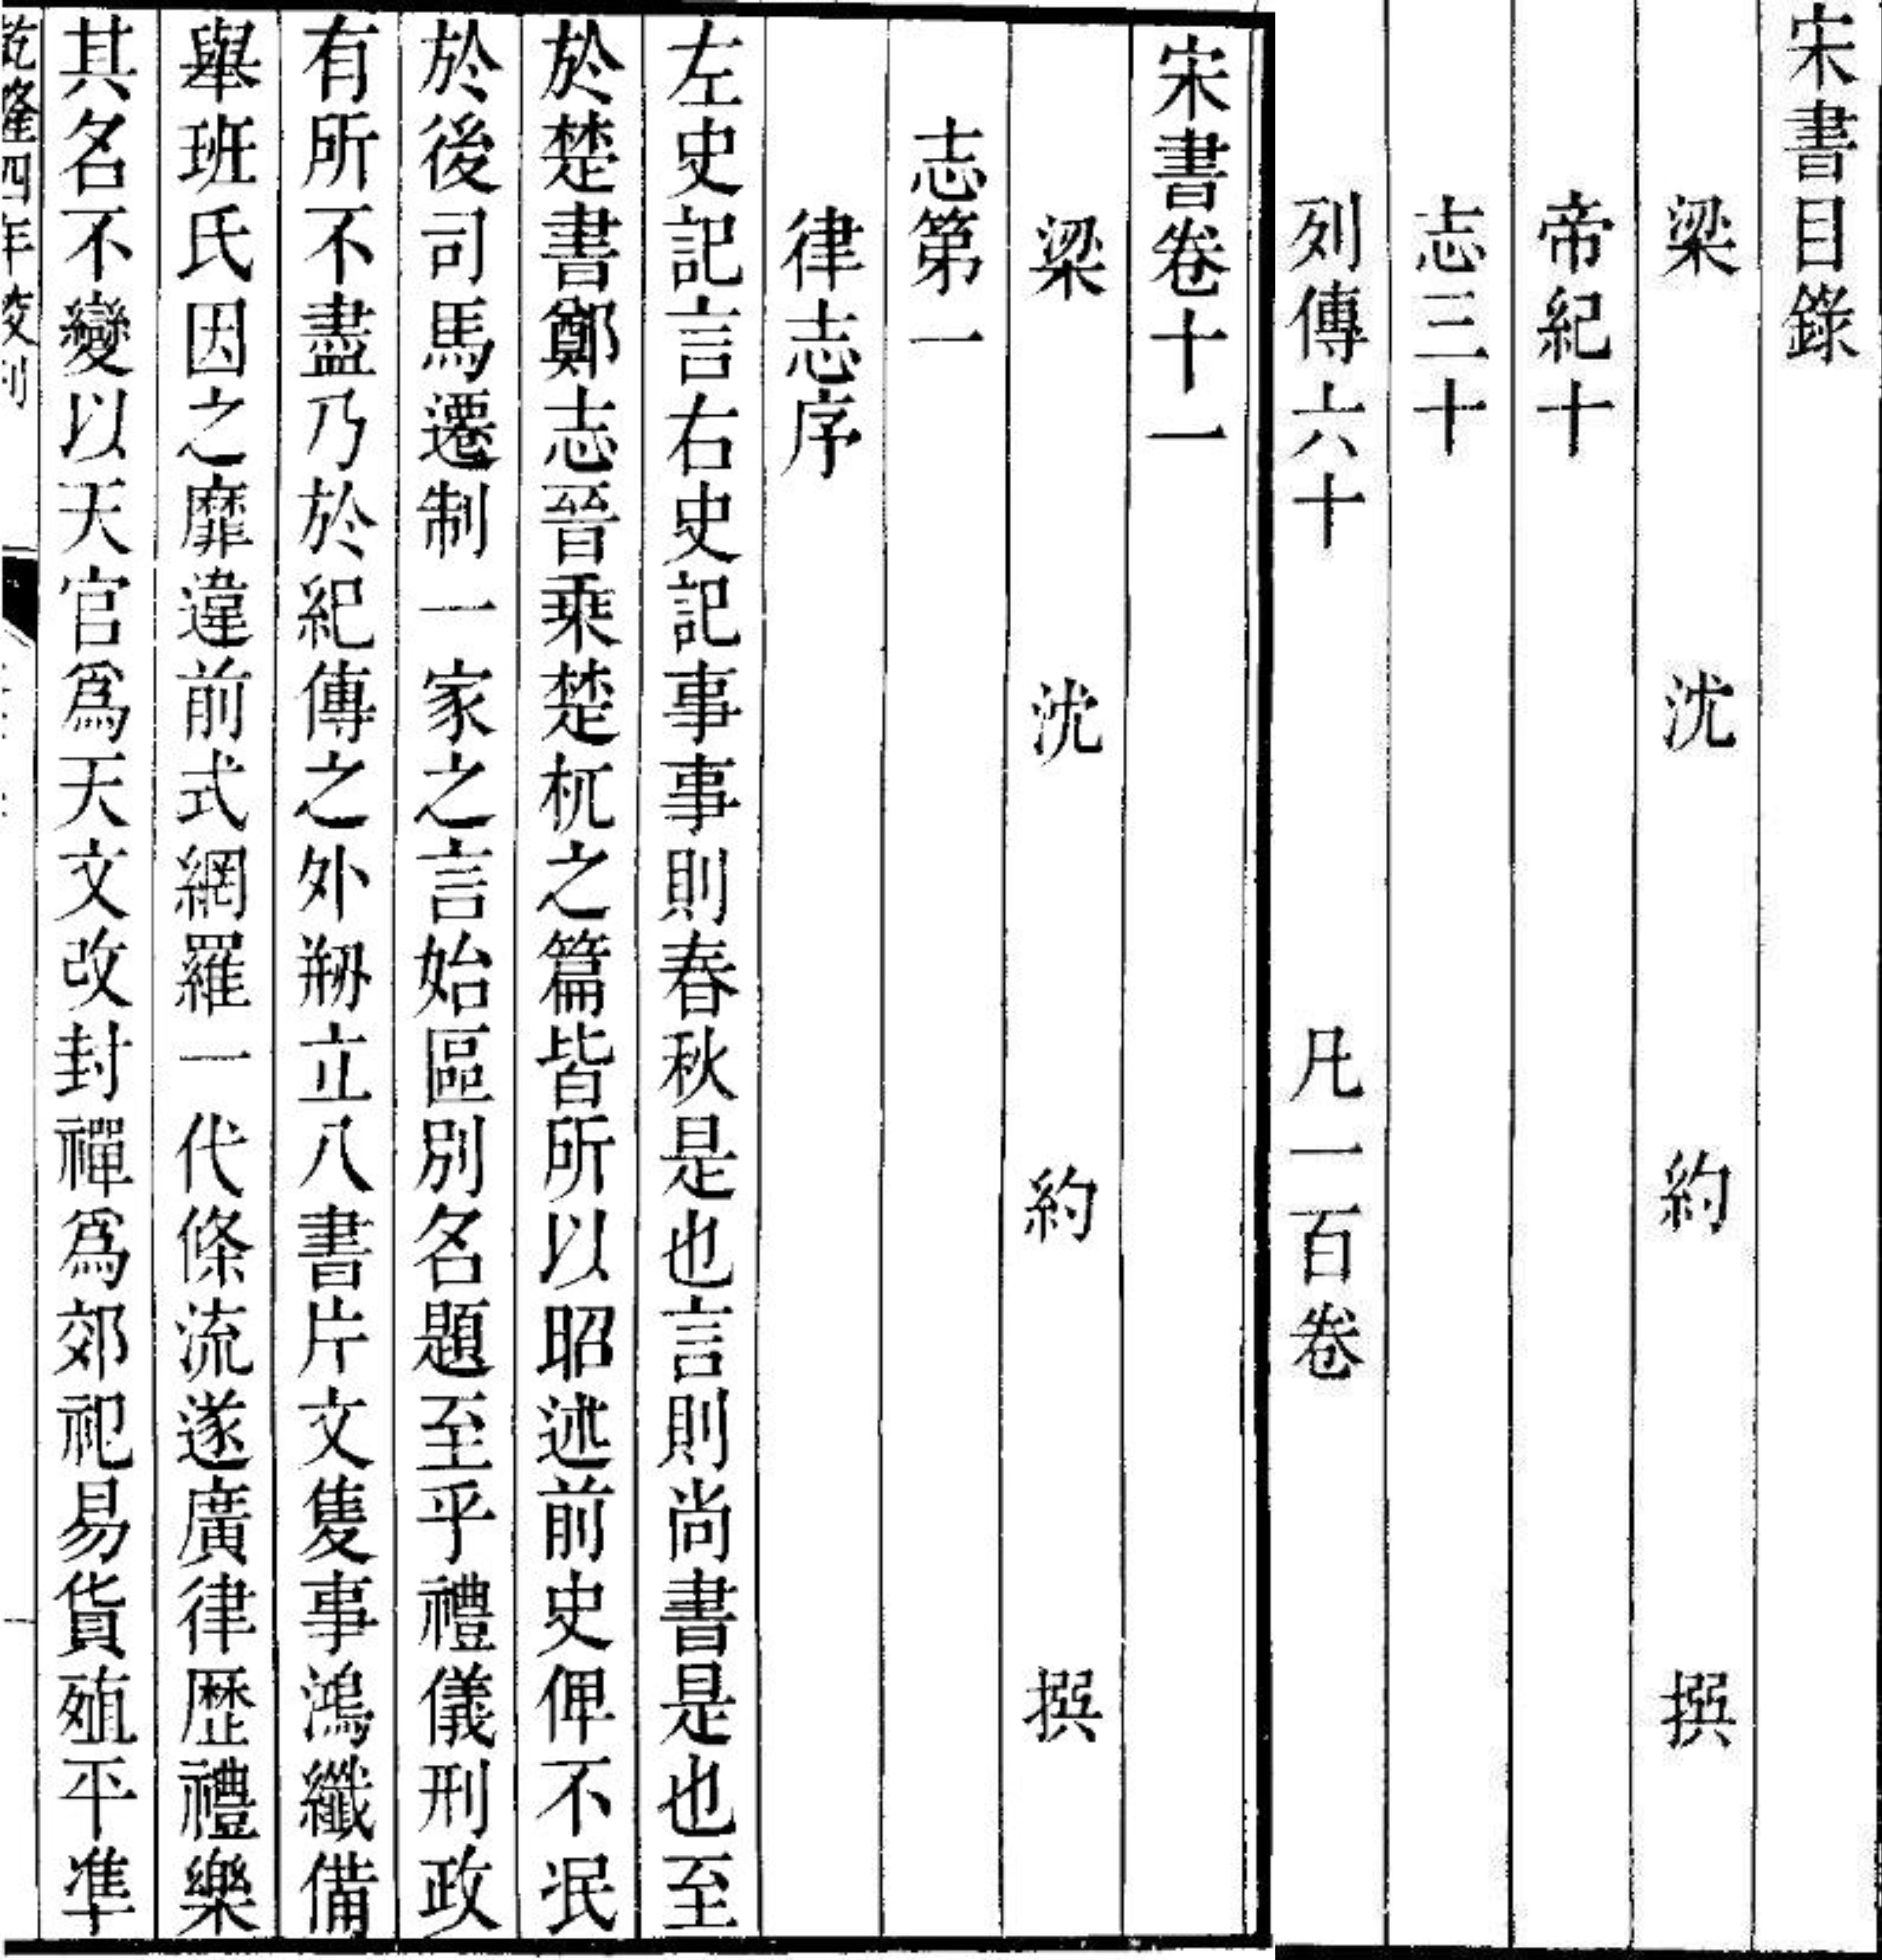 宋書目錄
梁 沈 約 撰
帝紀十
志三十
列傳六十 凡一百卷
宋書卷十一
梁 沈 約 撰
志第一
律志序
左史記言右史記事事則春秋是也言則尚書是也至
於楚書鄭志晉乘楚杌之篇皆所以昭述前史俾不泯
於後司馬遷制一家之言始區別名題至乎禮儀刑政
有所不盡乃於紀傳之外刱立八書片文隻事鴻纖備
舉班氏因之靡違前式網羅一代條流遂廣律歷禮樂
其名不變以天官爲天文改封禪爲郊祀易貨殖平準
乾隆四年校刊